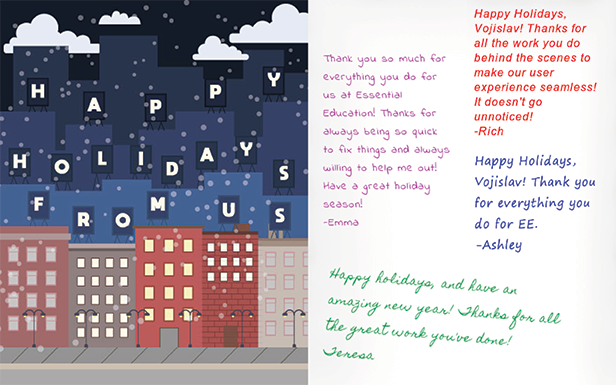 HAPPY
HOLIDAYS
FROM US
Thank you so much for
everything you do for
us at Essential
Education! Thanks for
always being so quick
to fix things and always
willing to help me out!
Have a great holiday
season!
-Emma
Happy Holidays,
Vojislav! Thanks for
all the work you do
behind the scenes to
make our user
experience seamless!
It doesn't go
unnoticed!
-Rich
Happy Holidays,
Vojislav! Thank you
for everything you
do for EE.
-Ashley
Happy holidays, and have an
amazing new year! Thanks for all
the great work you've done!
Teresa